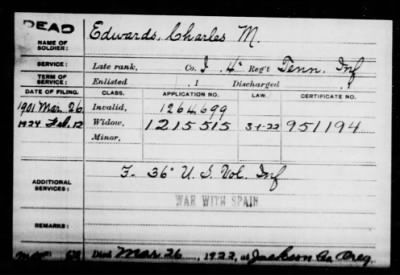 DEAD
NAME OF SOLDIER: Edwards, Charles M.
SERVICE: Late rank, Co. I, 4" Reg't Tenn. Inf
TERM OF SERVICE: Enlisted , 1 Discharged , 1
DATE OF FILING. CLASS. APPLICATION NO. LAW. CERTIFICATE NO.
1901 Mar. 26 Invalid, 1264699
1924 Feb. 12 Widow, 1215515 3-1-22 951194
Minor,
ADDITIONAL SERVICES: F. 36" U.S. Vol. Inf
WAR WITH SPAIN
REMARKS:
Died Mar. 26, 1922, at Jackson Co Oreg.